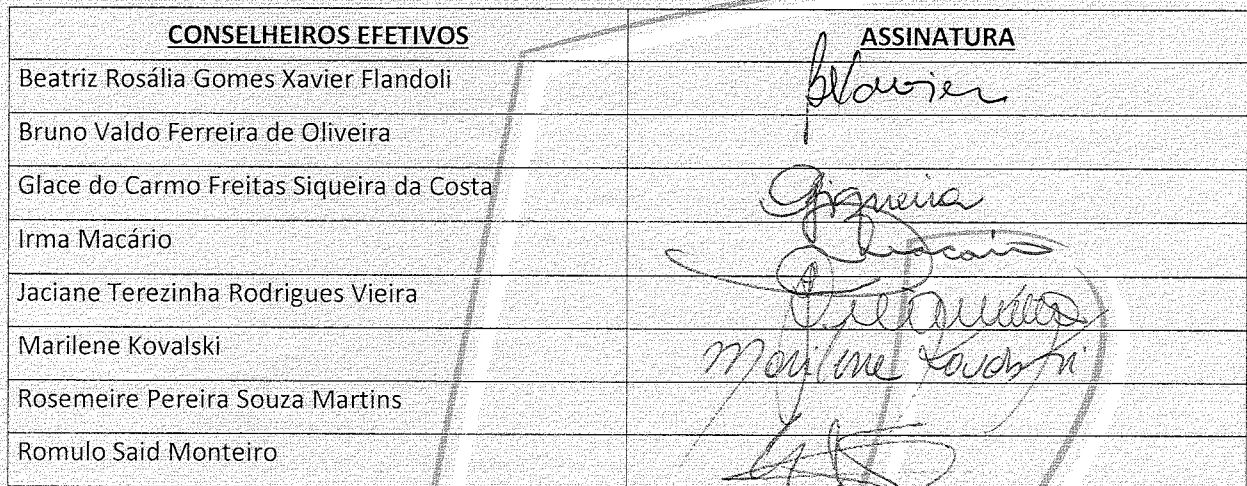 CONSELHEIROS EFETIVOS ASSINATURA
Beatriz Rosália Gomes Xavier Flandoli BXavier
Bruno Valdo Ferreira de Oliveira
Glace do Carmo Freitas Siqueira da Costa
Irma Macário Macário
Jaciane Terezinha Rodrigues Vieira
Marilene Kovalski Marilene Kovalski
Rosemeire Pereira Souza Martins
Romulo Said Monteiro